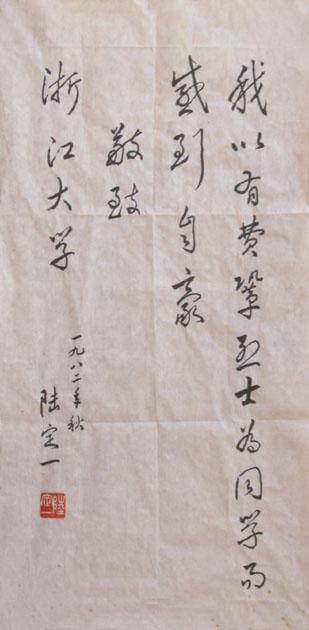 我以有费巩烈士为同学而
感到自豪
敬致
浙江大学
一九八二年秋
陆定一
陸定一